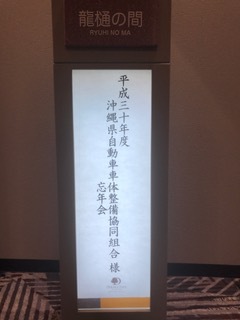 龍樋の間
RYUHI NO MA
平成三十年度
沖縄県自動車車体整備協同組合 様
忘年会